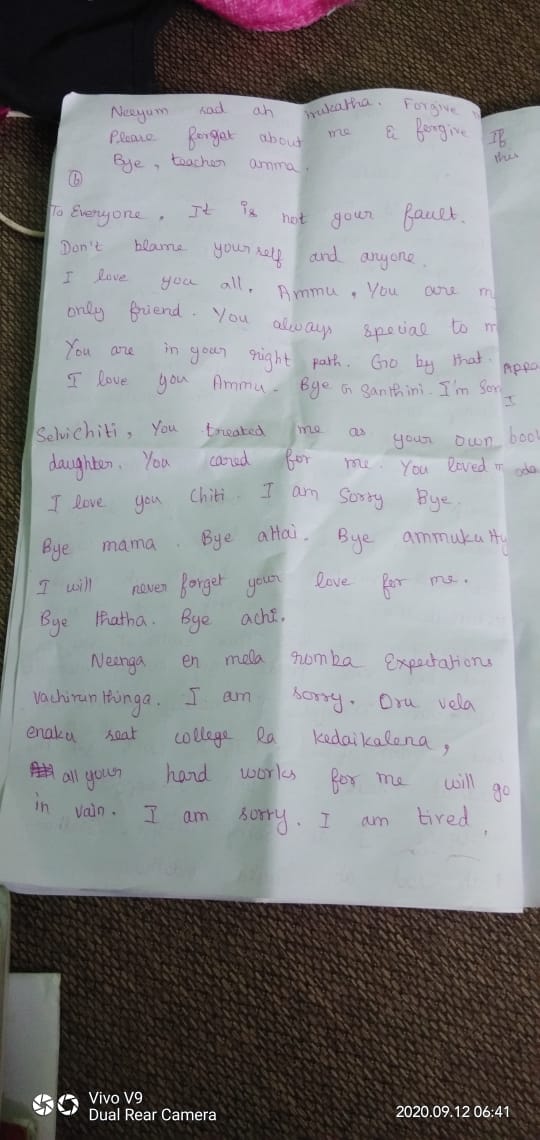 Neeyum sad ah irukatha. Forgive
Please forget about me & forgive
Bye, teacher amma.
6
To Everyone, It is not your fault.
Don't blame yourself and anyone.
I love you all. Ammu, You are
only friend. You always special to
You are in your right path. Go by that.
I love you Ammu. Bye Santhini. I'm
Selvichiti, You treated me as your own
daughter. You cared for me. You loved
I love you Chiti. I am Sorry Bye.
Bye mama. Bye attai. Bye ammukutty
I will never forget your love for me.
Bye thatha. Bye achi.
Neenga en mela romba Expectations
vachirunthinga. I am sorry. Oru vela
enaku seat college la kedaikalena,
all your hard works for me will go
in vain. I am sorry. I am tired.
If
this
Appa
I
Vivo V9
Dual Rear Camera
2020.09.12 06:41